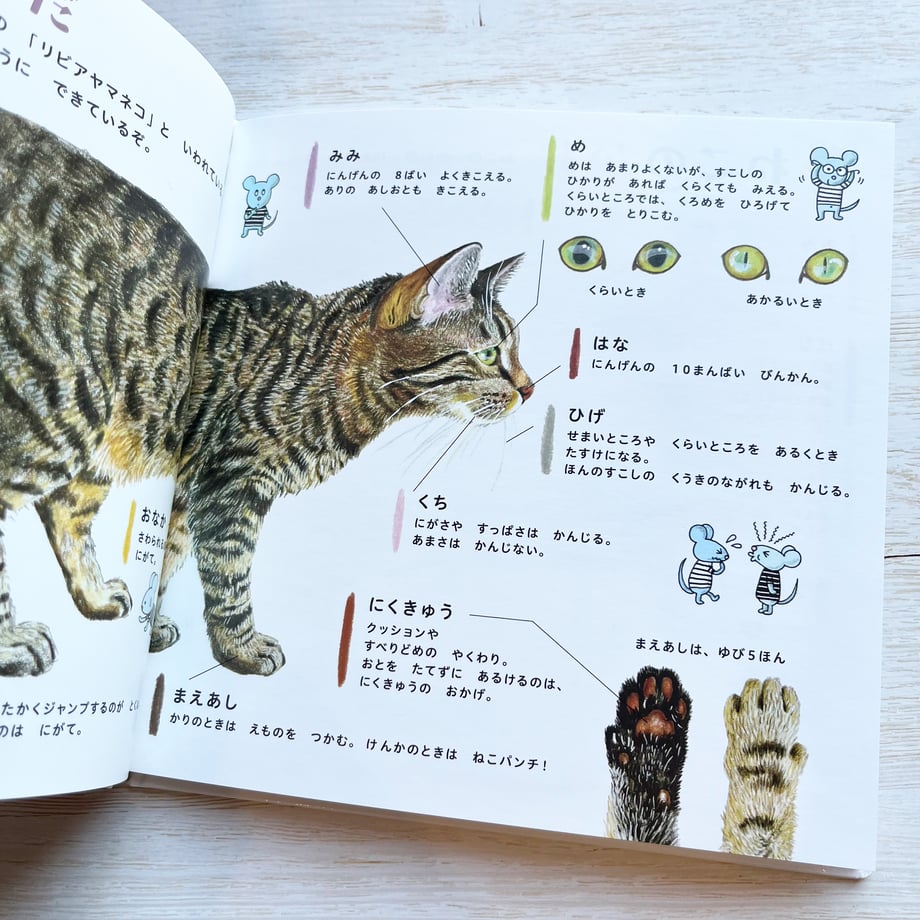 だ
の 「リビアヤマネコ」と いわれてい
うに できているぞ。
みみ
にんげんの 8ばい よくきこえる。
ありの あしおとも きこえる。
め
めは あまりよくないが、すこしの
ひかりが あれば くらくても みえる。
くらいところでは、くろめを ひろげて
ひかりを とりこむ。
くらいとき
あかるいとき
はな
にんげんの 10まんばい びんかん。
ひげ
せまいところや くらいところを あるくとき
たすけになる。
ほんのすこしの くうきのながれも かんじる。
くち
にがさや すっぱさは かんじる。
あまさは かんじない。
おなか
さわられ
にがて。
にくきゅう
クッションや
すべりどめの やくわり。
おとを たてずに あるけるのは、
にくきゅうの おかげ。
まえあしは、ゆび5ほん
まえあし
かりのときは えものを つかむ。けんかのときは ねこパンチ!
たかくジャンプするのが とく
のは にがて。